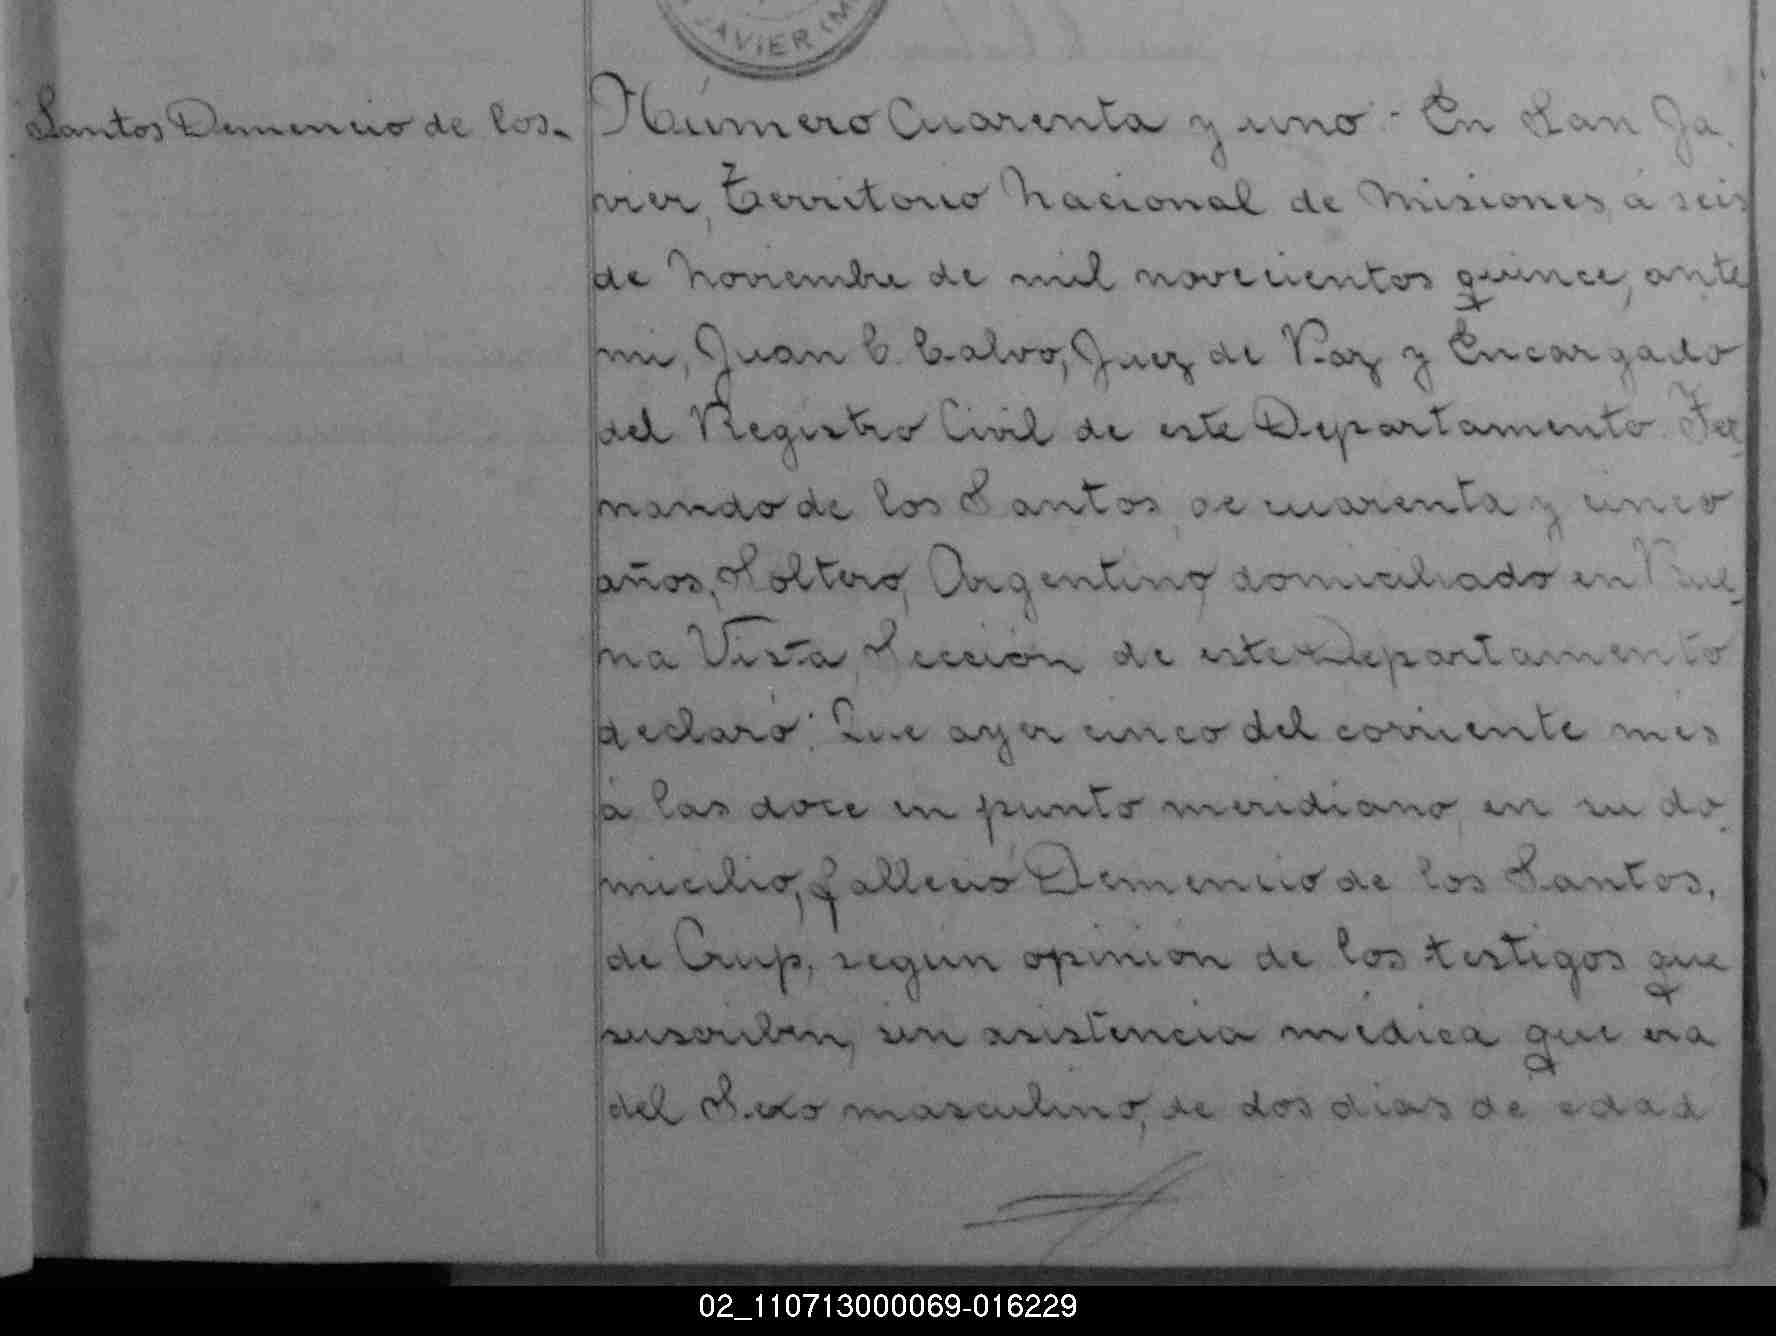 AVIER (M
Santos Demencio de los.-
Número Cuarenta y uno.- En San Ja-
vier, Territorio Nacional de Misiones, á seis
de Noviembre de mil novecientos quince, ante
mi, Juan C. Calvo, Juez de Paz y Encargado
del Registro Civil de este Departamento Fer-
nando de los Santos, de cuarenta y cinco
años, Soltero, Argentino, domiciliado en Bue-
na Vista, Sección de este Departamento
declaró: Que ayer cinco del corriente mes
á las doce en punto meridiano, en su do-
micilio, falleció Demencio de los Santos,
de Crup, según opinión de los testigos que
suscriben, sin asistencia médica que era
del Sexo masculino, de dos dias de edad
02_110713000069-016229